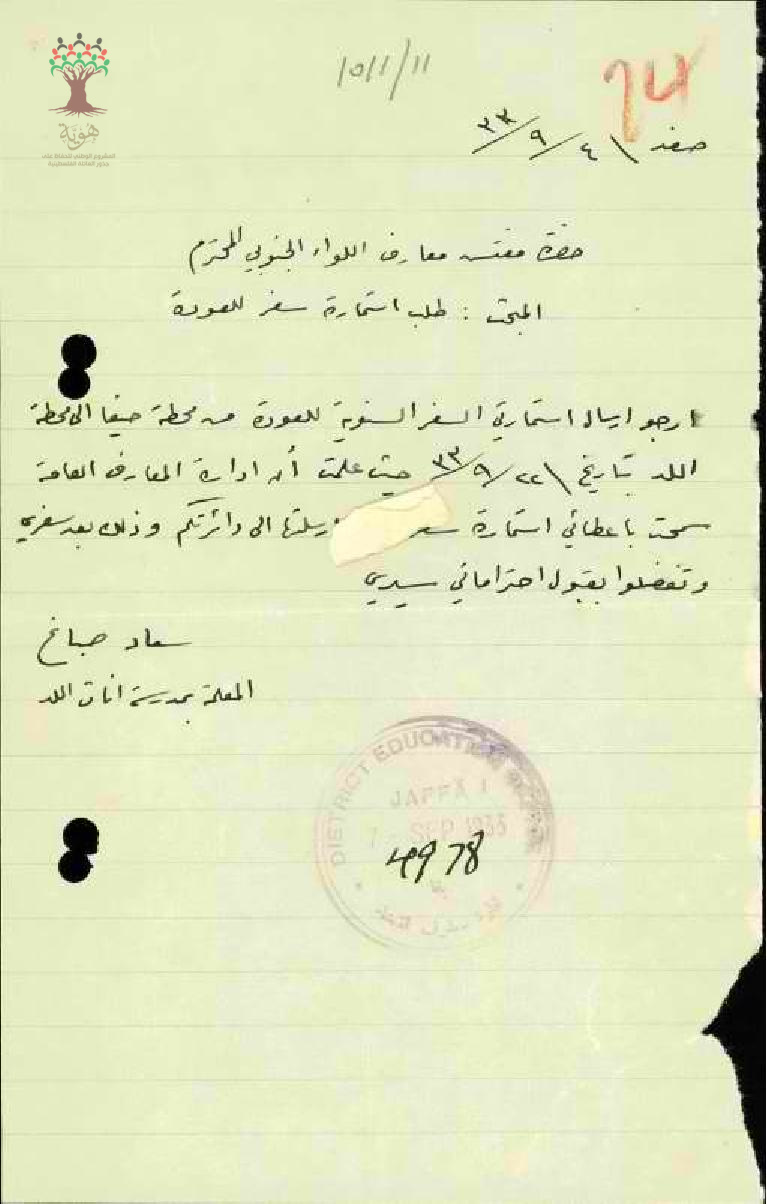 هُويّة
المشروع الوطني للحفاظ على
جذور العائلة الفلسطينية
10/1/11
صفد ٤ / ٩ / ٣٣
حضرة مفتش معارف اللواء الجنوبي المحترم
المبحث : طلب استمارة سفر للعودة
ارجو ارسال استمارتي السفر السنوية للعودة من محطة حيفا الى محطة
اللد بتاريخ ٢٢ / ٩ / ٣٣ حيث علمت أن ادارة المعارف العامة
سمحت باعطائي استمارة سفر رسلتها الى دائرتكم وذلك بعد سفري
وتفضلوا بقبول احتراماتي سيدي
سعاد صباغ
المعلمة بمدرسة اناث اللد
DISTRICT EDUCATION
JAFFA
7 - SEP 1933
4978